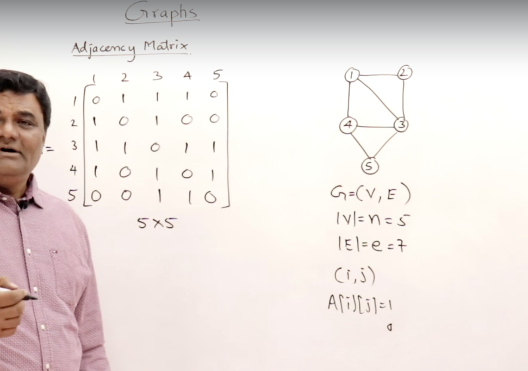 Graphs
Adjacency Matrix
1 2 3 4 5
1 0 1 1 1 0
2 1 0 1 0 0
= 3 1 1 0 1 1
4 1 0 1 0 1
5 0 0 1 1 0
5×5
1 2
4 3
5
G=(V,E)
|V|=n=5
|E|=e=7
(i,j)
A[i][j]=1
0